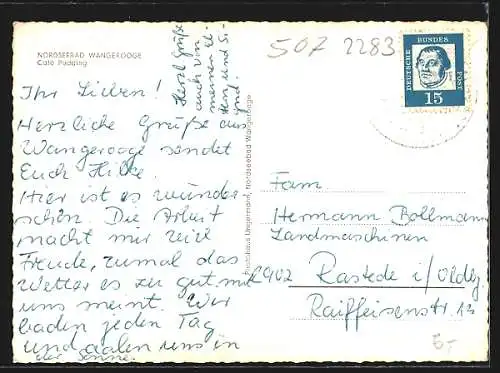 NORDSEEBAD WANGEROOGE
Café Pudding
Ihr Lieben!
Herzliche Grüße aus
Wangerooge sendet
Euch Hilke.
Hier ist es wunder
schön. Die Arbeit
macht mir viel
Freude, zumal das
Wetter es zu gut mit
uns meint. Wir
baden jeden Tag
und aalen uns in
der Sonne.
Herzl. Grüße
auch von
meinen El-
tern und
507 2283
DEUTSCHE BUNDESPOST
15
Nordseebad Wangerooge
Fam
Hermann Bollmann
Landmaschinen
2902 Rastede i/Oldbg
Raiffeisenstr. 13
5,-